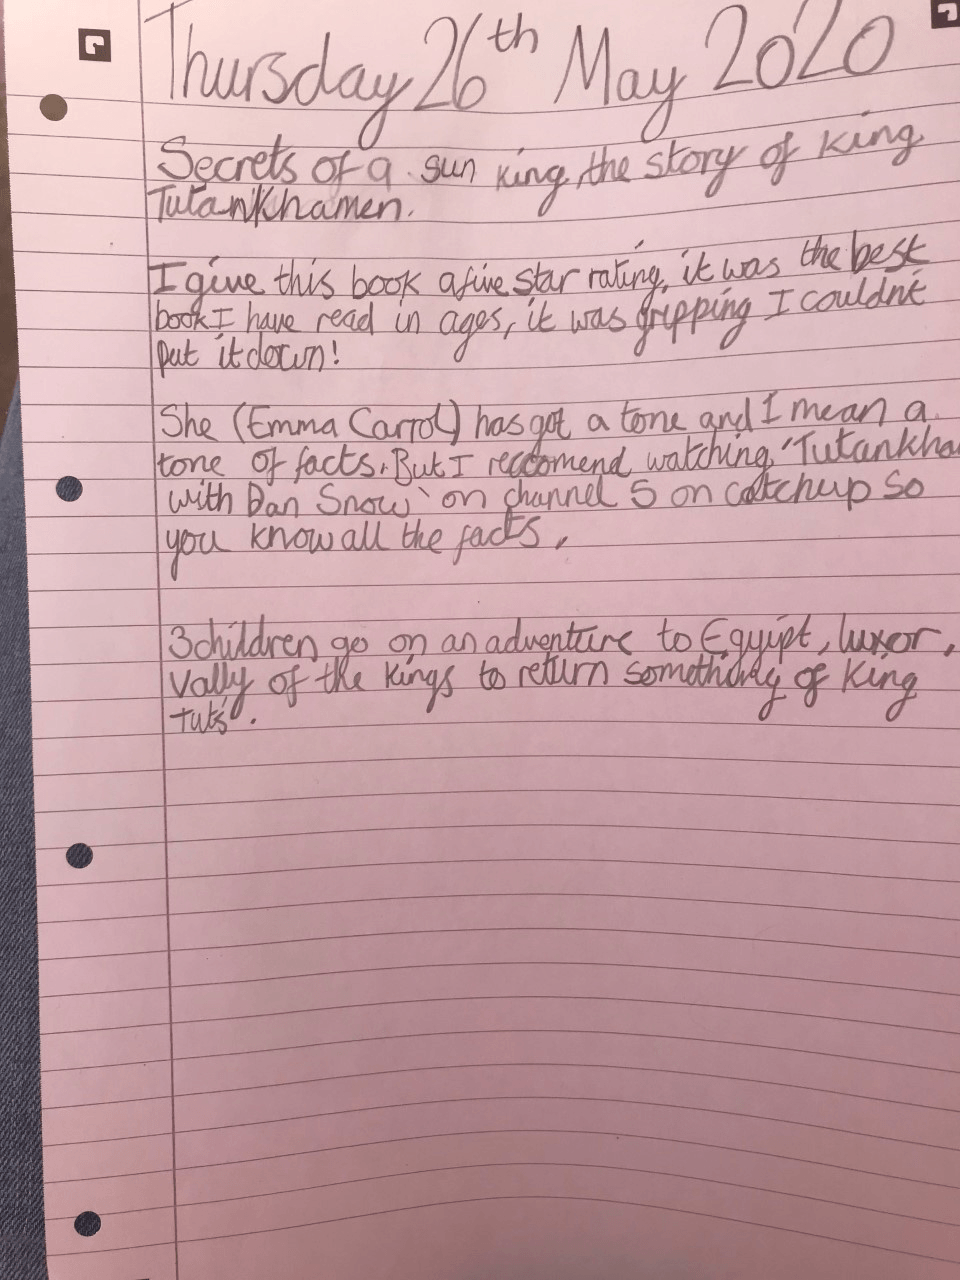 Thursday 26th May 2020
Secrets of a sun king, the story of King
Tutankhamen.
I give this book a five star rating, it was the best
book I have read in ages, it was gripping I couldn't
put it down!
She (Emma Carrol) has got a tone and I mean a
tone of facts. But I reccomend watching 'Tutankha
with Dan Snow' on channel 5 on catchup so
you know all the facts.
3 children go on an adventure to Egyipt, luxor,
Vally of the Kings to return something of King
tuts'.